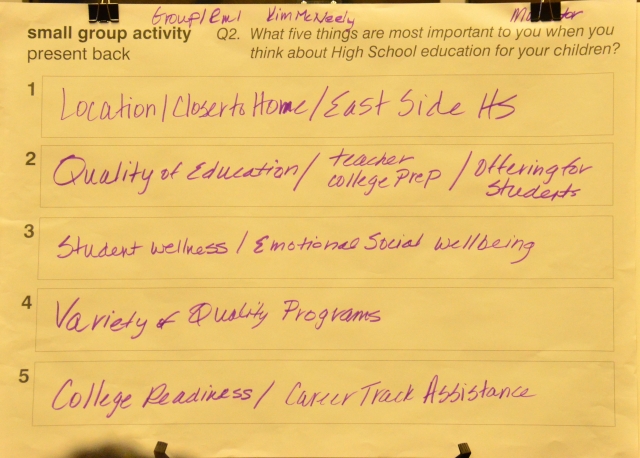 Group/Rm 1 Kim McNeely
small group activity Q2. What five things are most important to you when you
present back think about High School education for your children?
1 Location/Closer to Home/East Side HS
2 Quality of Education/ teacher college Prep / Offering for Students
3 Student wellness / Emotional Social wellbeing
4 Variety of Quality Programs
5 College Readiness/ Career Track Assistance